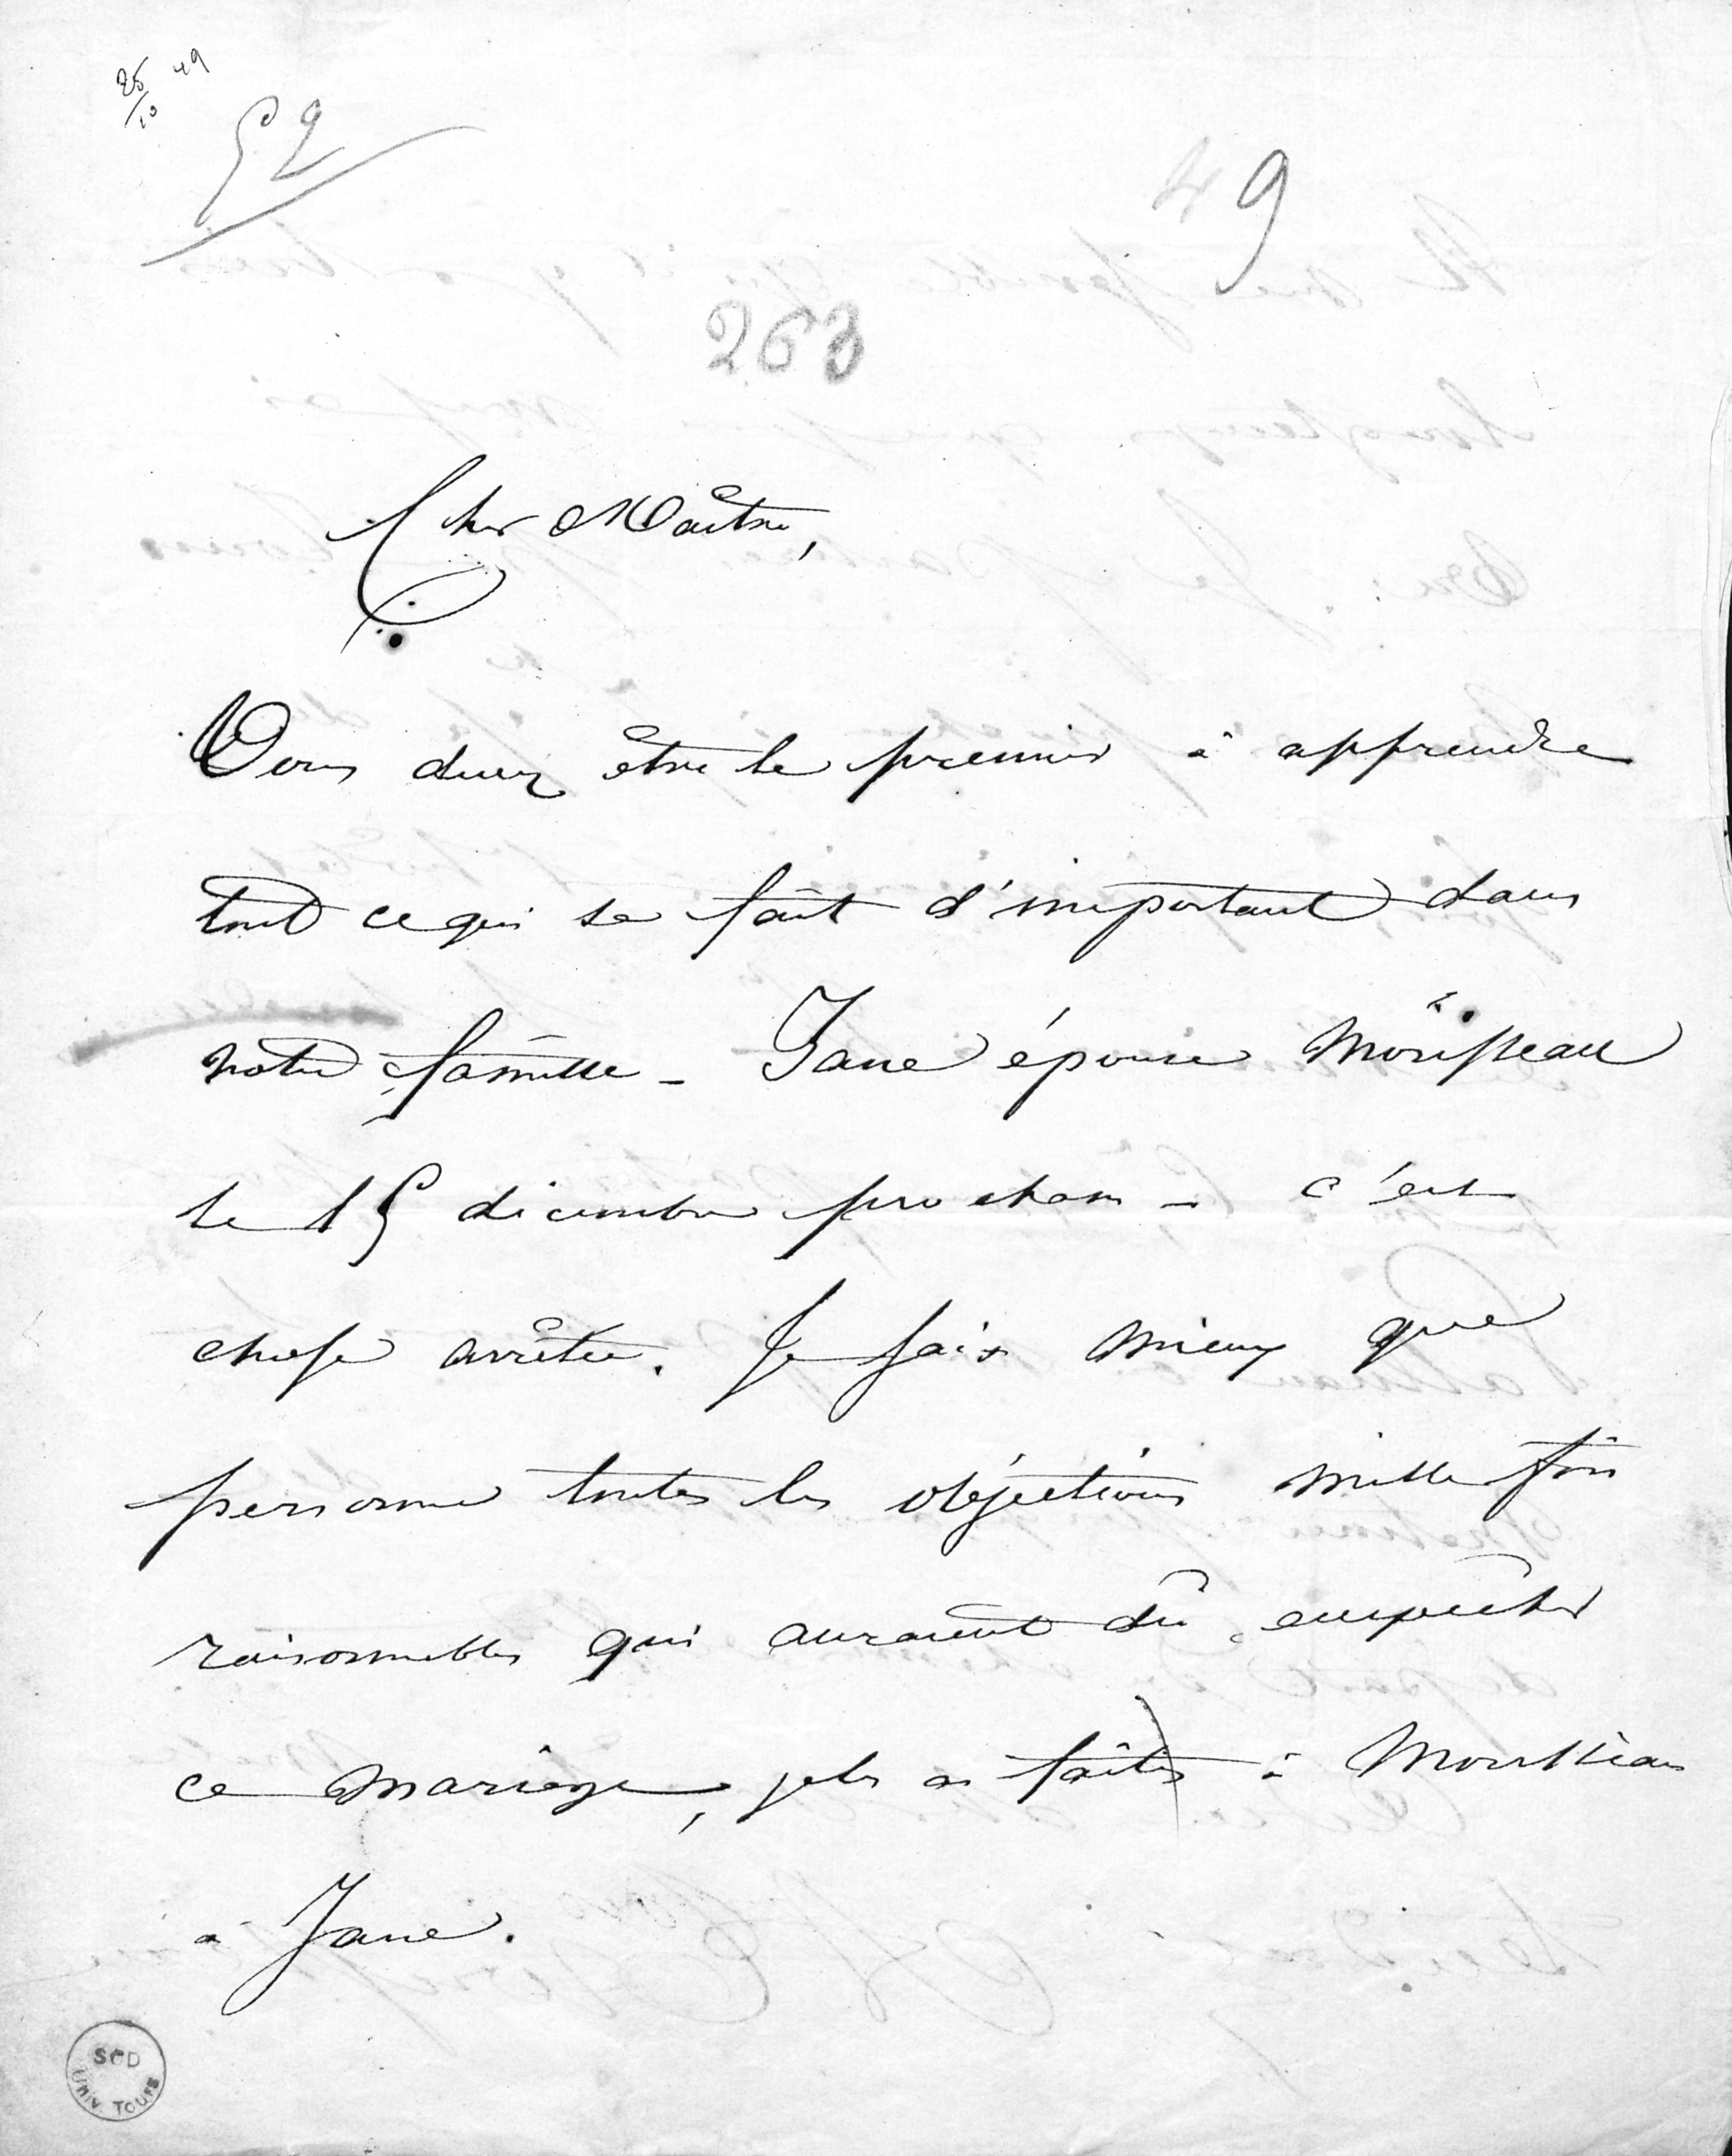 25/10 49
59
49
263
Cher Maître,
Vous devez être le premier à apprendre
tout ce qui se fait d'important dans
notre famille - Jane épouse Moisseau
le 15 décembre prochain - c'est
chose arrêtée. Je sais mieux que
personne toutes les objections mille fois
raisonnables qui auraient dû empêcher
ce mariage, je les ai faites à
à Jane.
SCD
UNIV. TOURS